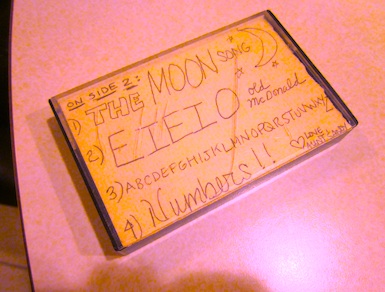 ON SIDE 2:
1) THE MOON SONG
2) EIEIO old McDonald
3) ABCDEFGHIJKLMNOPQRSTUVWXYZ
4) Numbers!!
LOVE